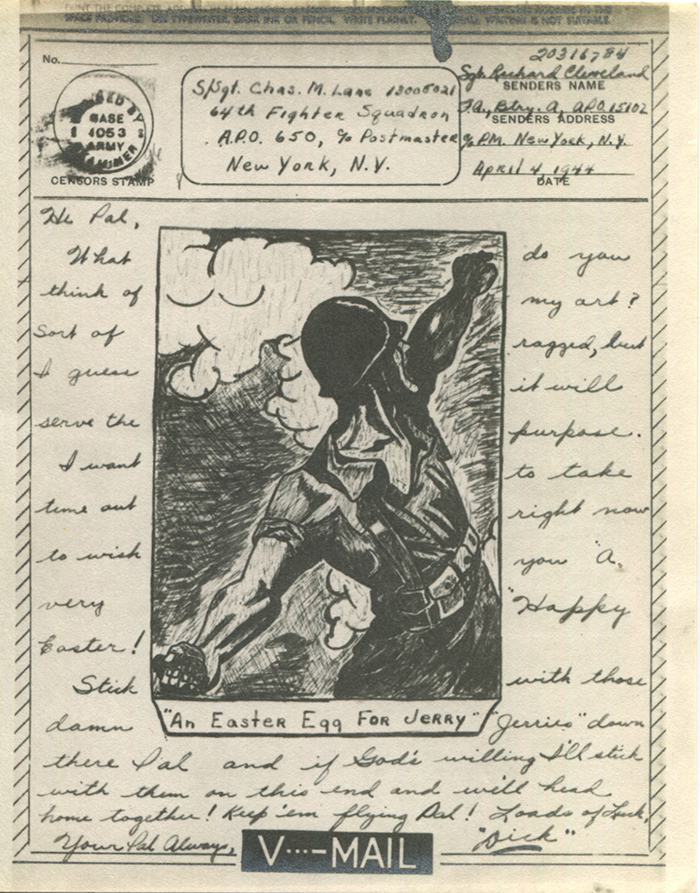 PRINT THE COMPLETE
SPACE PROVIDED. USE TYPEWRITER, DARK INK OR PENCIL. WRITE PLAINLY. WRITING IS NOT SUITABLE.
No.
BY
BASE
1053
ARMY
CENSORS STAMP
S/Sgt. Chas. M. Lane 13008021
64th Fighter Squadron
A.P.O. 650, % Postmaster
New York, N.Y.
20316784
Sgt. Richard Cleveland
SENDERS NAME
F.A., Btry. A, A.P.O. 15102
SENDERS ADDRESS
% PM. New York, N.Y.
April 4, 1944
DATE
Hi Pal,
What do you
think of my art?
Sort of ragged, but
I guess it will
serve the purpose.
I want to take
time out right now
to wish you "A,
very "Happy
Easter!
Stick with those
damn "Jerries" down
"An Easter Egg For Jerry"
there Pal and if God's willing I'll stick
with them on this end and we'll head
home together! Keep 'em flying Pal! Loads of Luck,
Your Pal Always, "Dick"
V···-MAIL